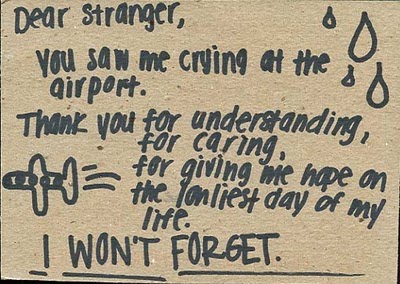 Dear stranger,
you saw me crying at the
airport.
Thank you for understanding,
for caring,
for giving me hope on
the lonliest day of my
life.
I WON'T FORGET.